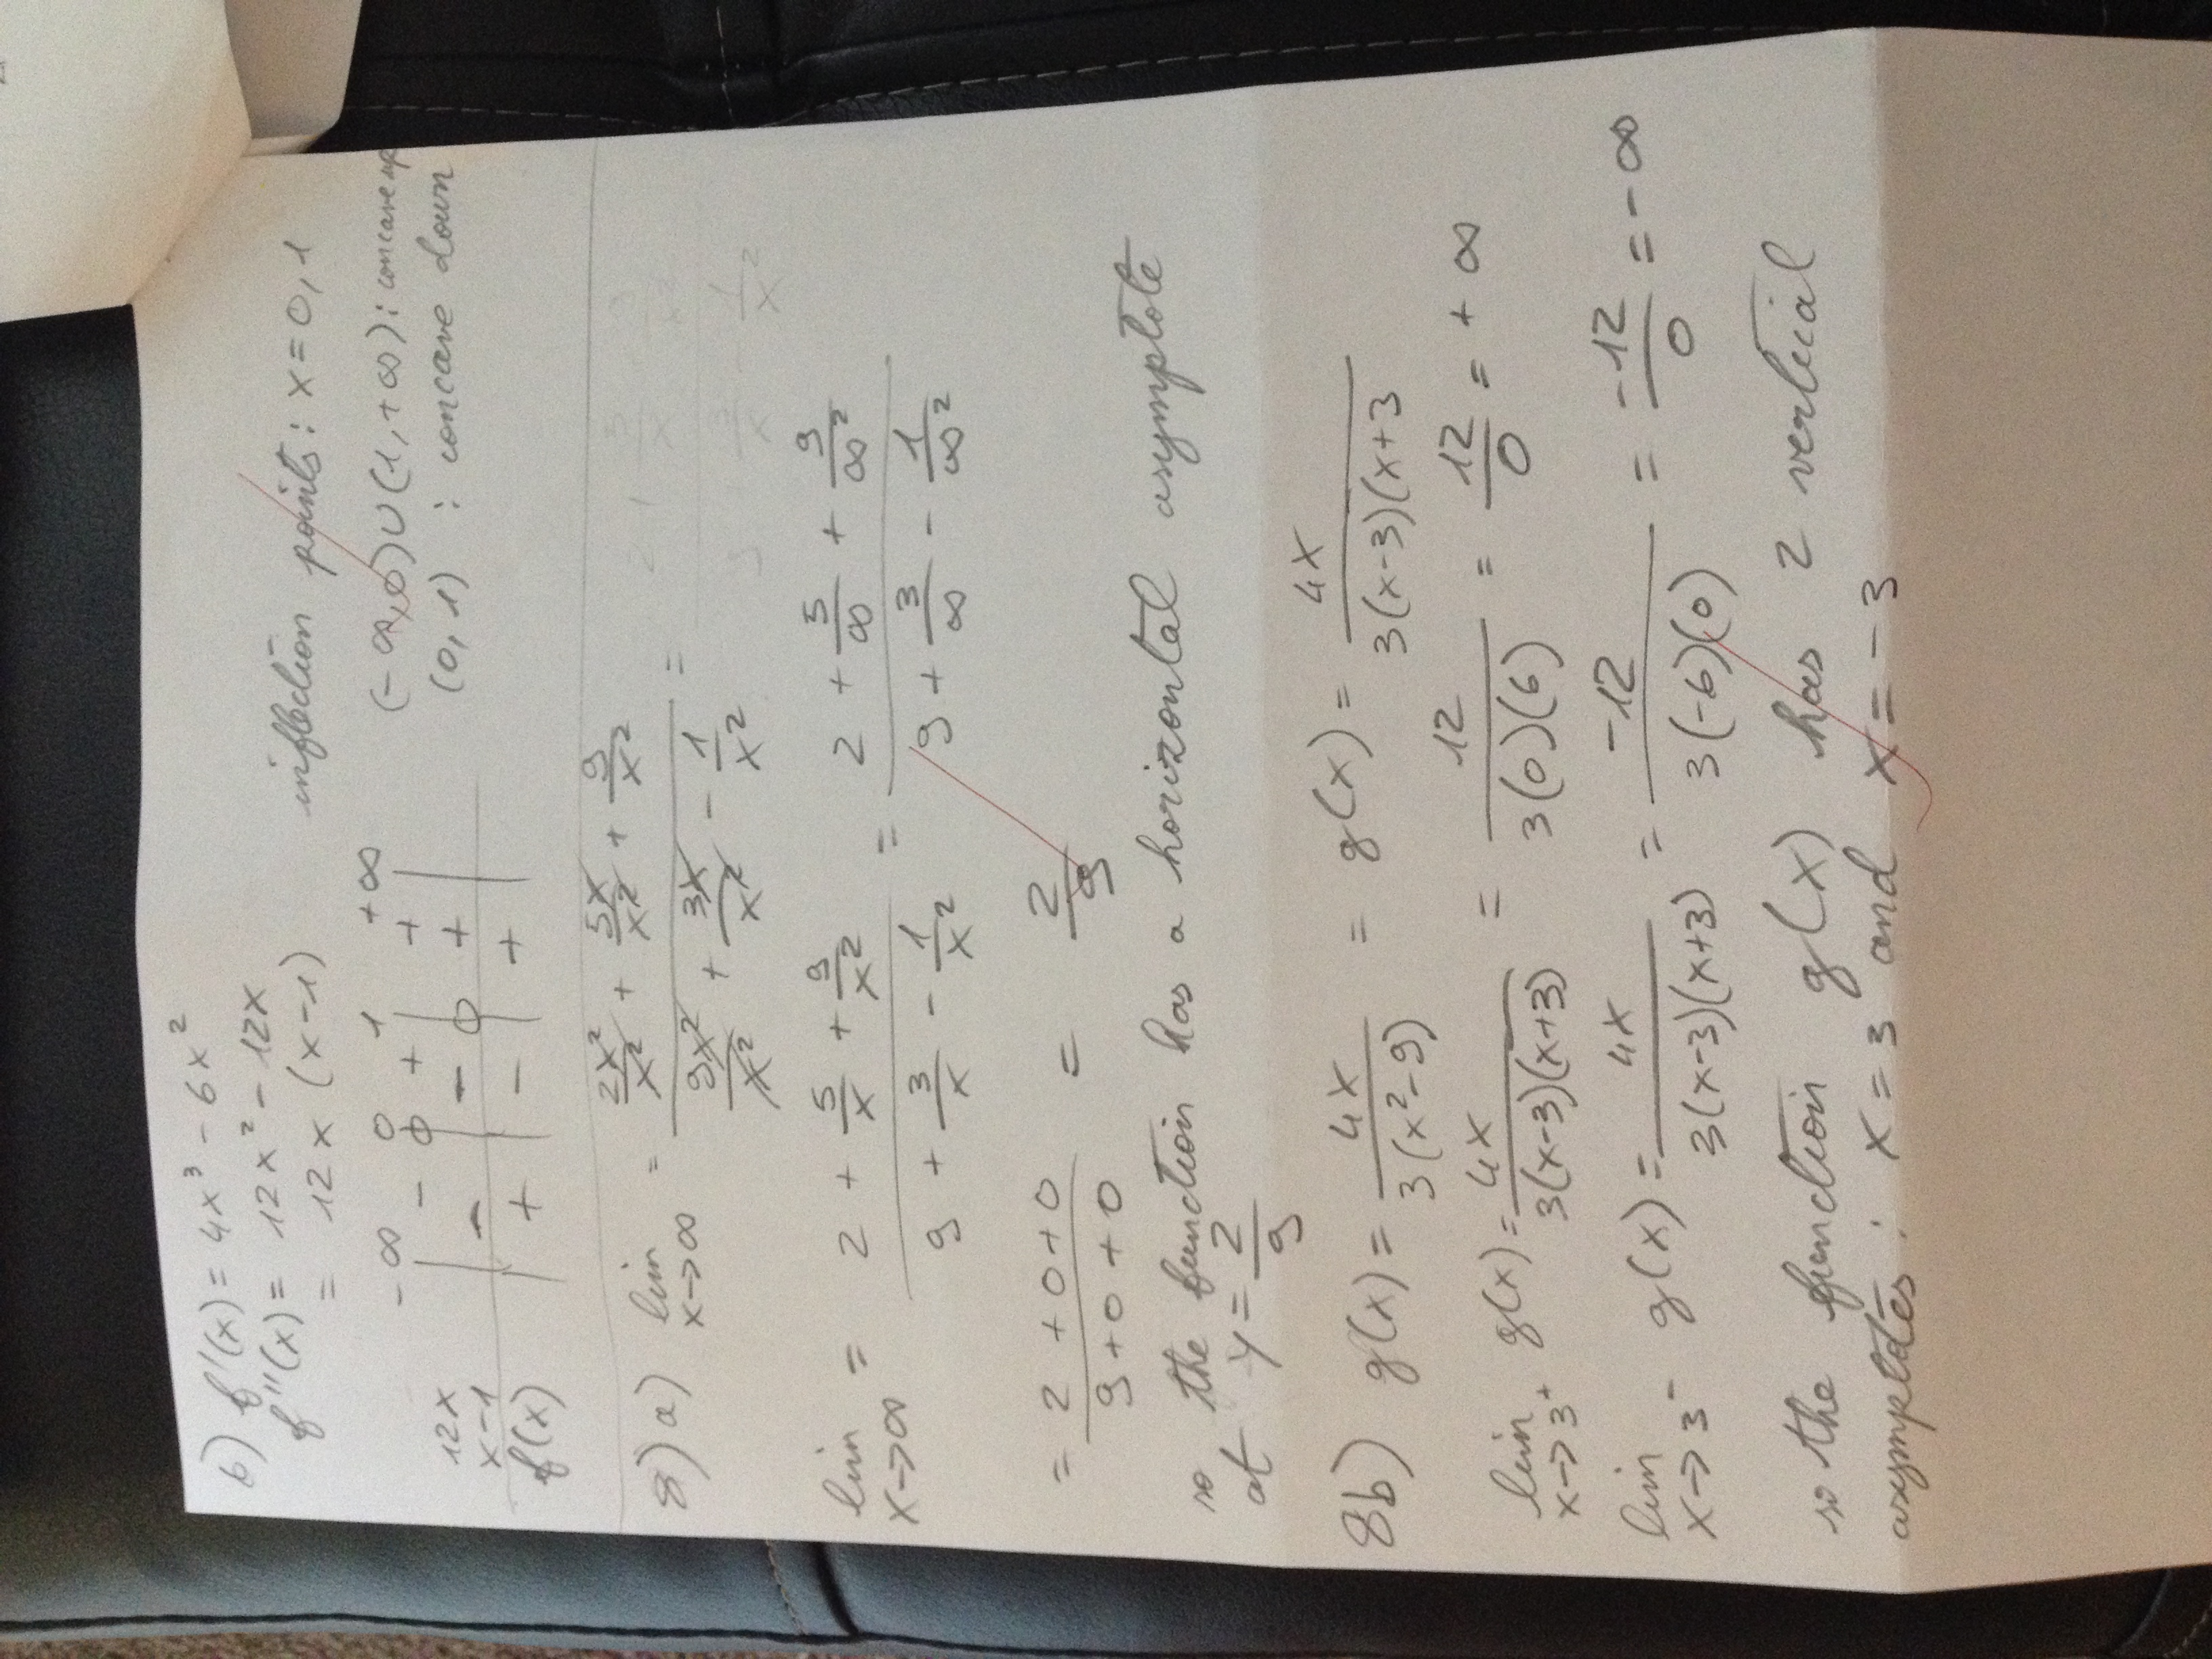 b) f'(x) = 4x³ - 6x²
f''(x) = 12x² - 12x
= 12x (x-1)
inflection points: x = 0, 1
-∞ 0 1 +∞
12x - 0 + +
x-1 - - 0 +
f(x) + - +
(-∞,0)∪(1,+∞): concave up
(0,1) : concave down
8) a) lim x→∞ = (2x²/x² + 5x/x² + 9/x²) / (9x²/x² + 3x/x² - 1/x²) =
lim x→∞ = (2 + 5/x + 9/x²) / (9 + 3/x - 1/x²) = (2 + 5/∞ + 9/∞²) / (9 + 3/∞ - 1/∞²)
= (2 + 0 + 0) / (9 + 0 + 0) = 2/9
so the function has a horizontal asymptote
at y = 2/9
8b) g(x) = 4x / 3(x²-9) = g(x) = 4x / 3(x-3)(x+3
lim x→3⁺ g(x) = 4x / 3(x-3)(x+3) = 12 / 3(0)(6) = 12/0 = +∞
lim x→3⁻ g(x) = 4x / 3(x-3)(x+3) = -12 / 3(-6)(0) = -12/0 = -∞
so the function g(x) has 2 vertical
asymptotes: x = 3 and x = -3